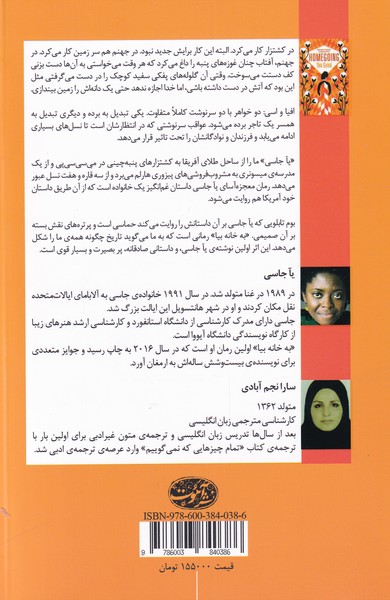 HOMEGOING
Yaa Gyasi
در کشتزار کار می‌کرد. البته این کار برایش جدید نبود. در جهنم هم سر زمین کار می‌کرد. در
جهنم، آفتاب چنان غوزه‌های پنبه را داغ می‌کرد که هر وقت می‌خواستی به آن‌ها دست بزنی
کف دستت می‌سوخت. وقتی آن گلوله‌های پفکی سفید کوچک را در دست می‌گرفتی مثل
این بود که آتش در دست داشته باشی، اما خدا اجازه ندهد حتی یک دانه‌اش را زمین بیندازی.
افیا و اسی: دو خواهر با دو سرنوشت کاملاً متفاوت. یکی تبدیل به برده و دیگری تبدیل به
همسر یک تاجر برده می‌شود. عواقب سرنوشتی که در انتظارشان است تا نسل‌های بسیاری
ادامه می‌یابد و فرزندان و نوادگانشان را تحت تاثیر قرار می‌دهد.
«یاَ جاسی» ما را از ساحل طلای آفریقا به کشتزارهای پنبه‌چینی در می‌سی‌سی‌پی و از یک
مدرسه‌ی میسونری به مشروب‌فروشی‌های پیزوری هارلم می‌برد و از سه قاره و هفت نسل عبور
می‌دهد. رمان معجزه‌آسای یاَ جاسی داستان غم‌انگیز یک خانواده است که از آن طریق داستان
خود آمریکا هم روایت می‌شود.
بوم تابلویی که یاَ جاسی بر آن داستانش را روایت می‌کند حماسی است و پرتره‌های نقش بسته
بر آن صمیمی. «به خانه بیا» رمانی است که به ما می‌گوید تاریخ چگونه همه‌ی ما را شکل
می‌دهد. این اثر اولین نوشته‌ی یاَ جاسی، و داستانی صادقانه، پر بصیرت و بسیار قوی است.
یاَ جاسی
در ۱۹۸۹ در غنا متولد شد. در سال ۱۹۹۱ خانواده‌ی جاسی به آلابامای ایالات‌متحده
نقل مکان کردند و او در شهر هانتسویل این ایالت بزرگ شد.
جاسی دارای مدرک کارشناسی از دانشگاه استانفورد و کارشناسی ارشد هنرهای زیبا
از کارگاه نویسندگی دانشگاه آیووا است.
«به خانه بیا» اولین رمان او است که در سال ۲۰۱۶ به چاپ رسید و جوایز متعددی
برای نویسنده‌ی بیست‌وشش ساله‌اش به ارمغان آورد.
سارا نجم آبادی
متولد ۱۳۶۲
کارشناسی مترجمی زبان انگلیسی
بعد از سال‌ها تدریس زبان انگلیسی و ترجمه‌ی متون غیرادبی برای اولین بار با
ترجمه‌ی کتاب «تمام چیزهایی که نمی‌گوییم» وارد عرصه‌ی ترجمه‌ی ادبی شد.
ISBN-978-600-384-038-6
9 786003 840386
قیمت ۱۵۵۰۰۰ تومان